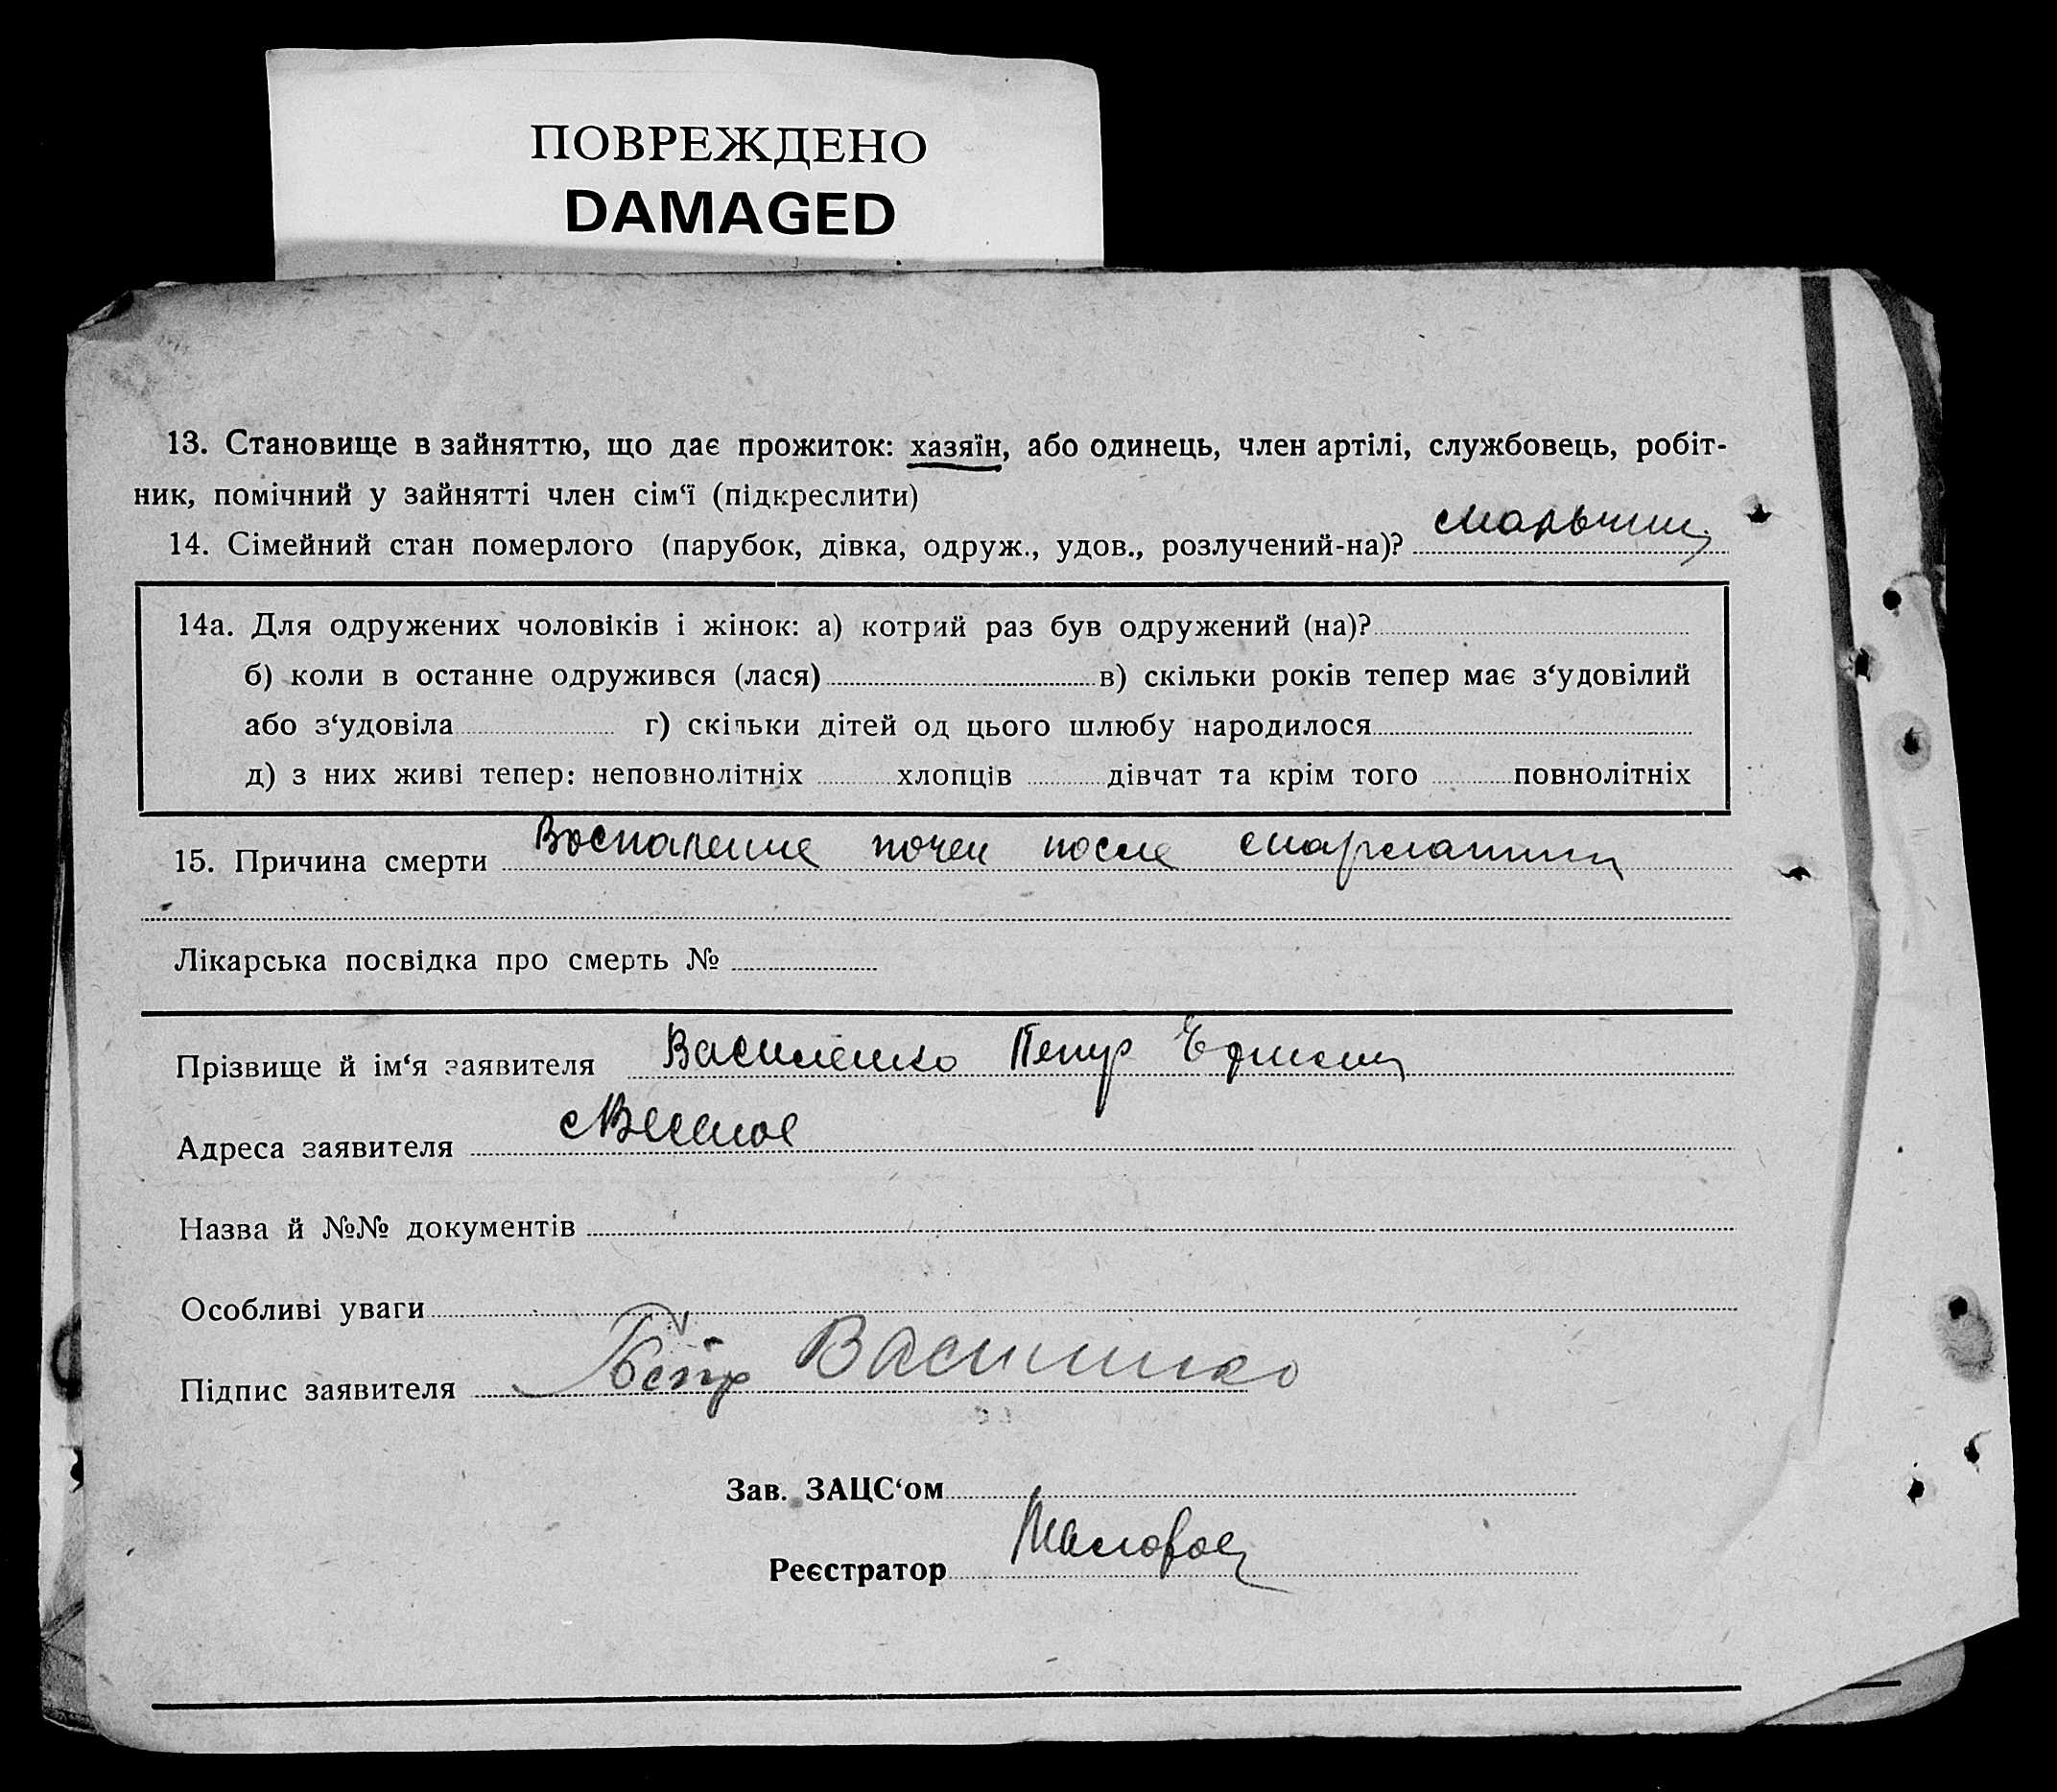 ПОВРЕЖДЕНО
DAMAGED
13. Становище в зайняттю, що дає прожиток: хазяїн, або одинець, член артілі, службовець, робіт-
ник, помічний у зайнятті член сім‘ї (підкреслити)
14. Сімейний стан померлого (парубок, дівка, одруж., удов., розлучений-на)?
14а. Для одружених чоловіків і жінок: а) котрий раз був одружений (на)?
б) коли в останне одружився (лася) в) скільки років тепер має з‘удовілий
або з‘удовіла г) скільки дітей од цього шлюбу народилося
д) з них живі тепер: неповнолітніх хлопців дівчат та крім того повнолітніх
15. Причина смерти Воспаление почек после скарлатины
Лікарська посвідка про смерть №
Прізвище й ім‘я заявителя Василенко Петр
Адреса заявителя
Назва й №№ документів
Особливі уваги
Підпис заявителя Василенко
Зав. ЗАЦС‘ом
Реєстратор